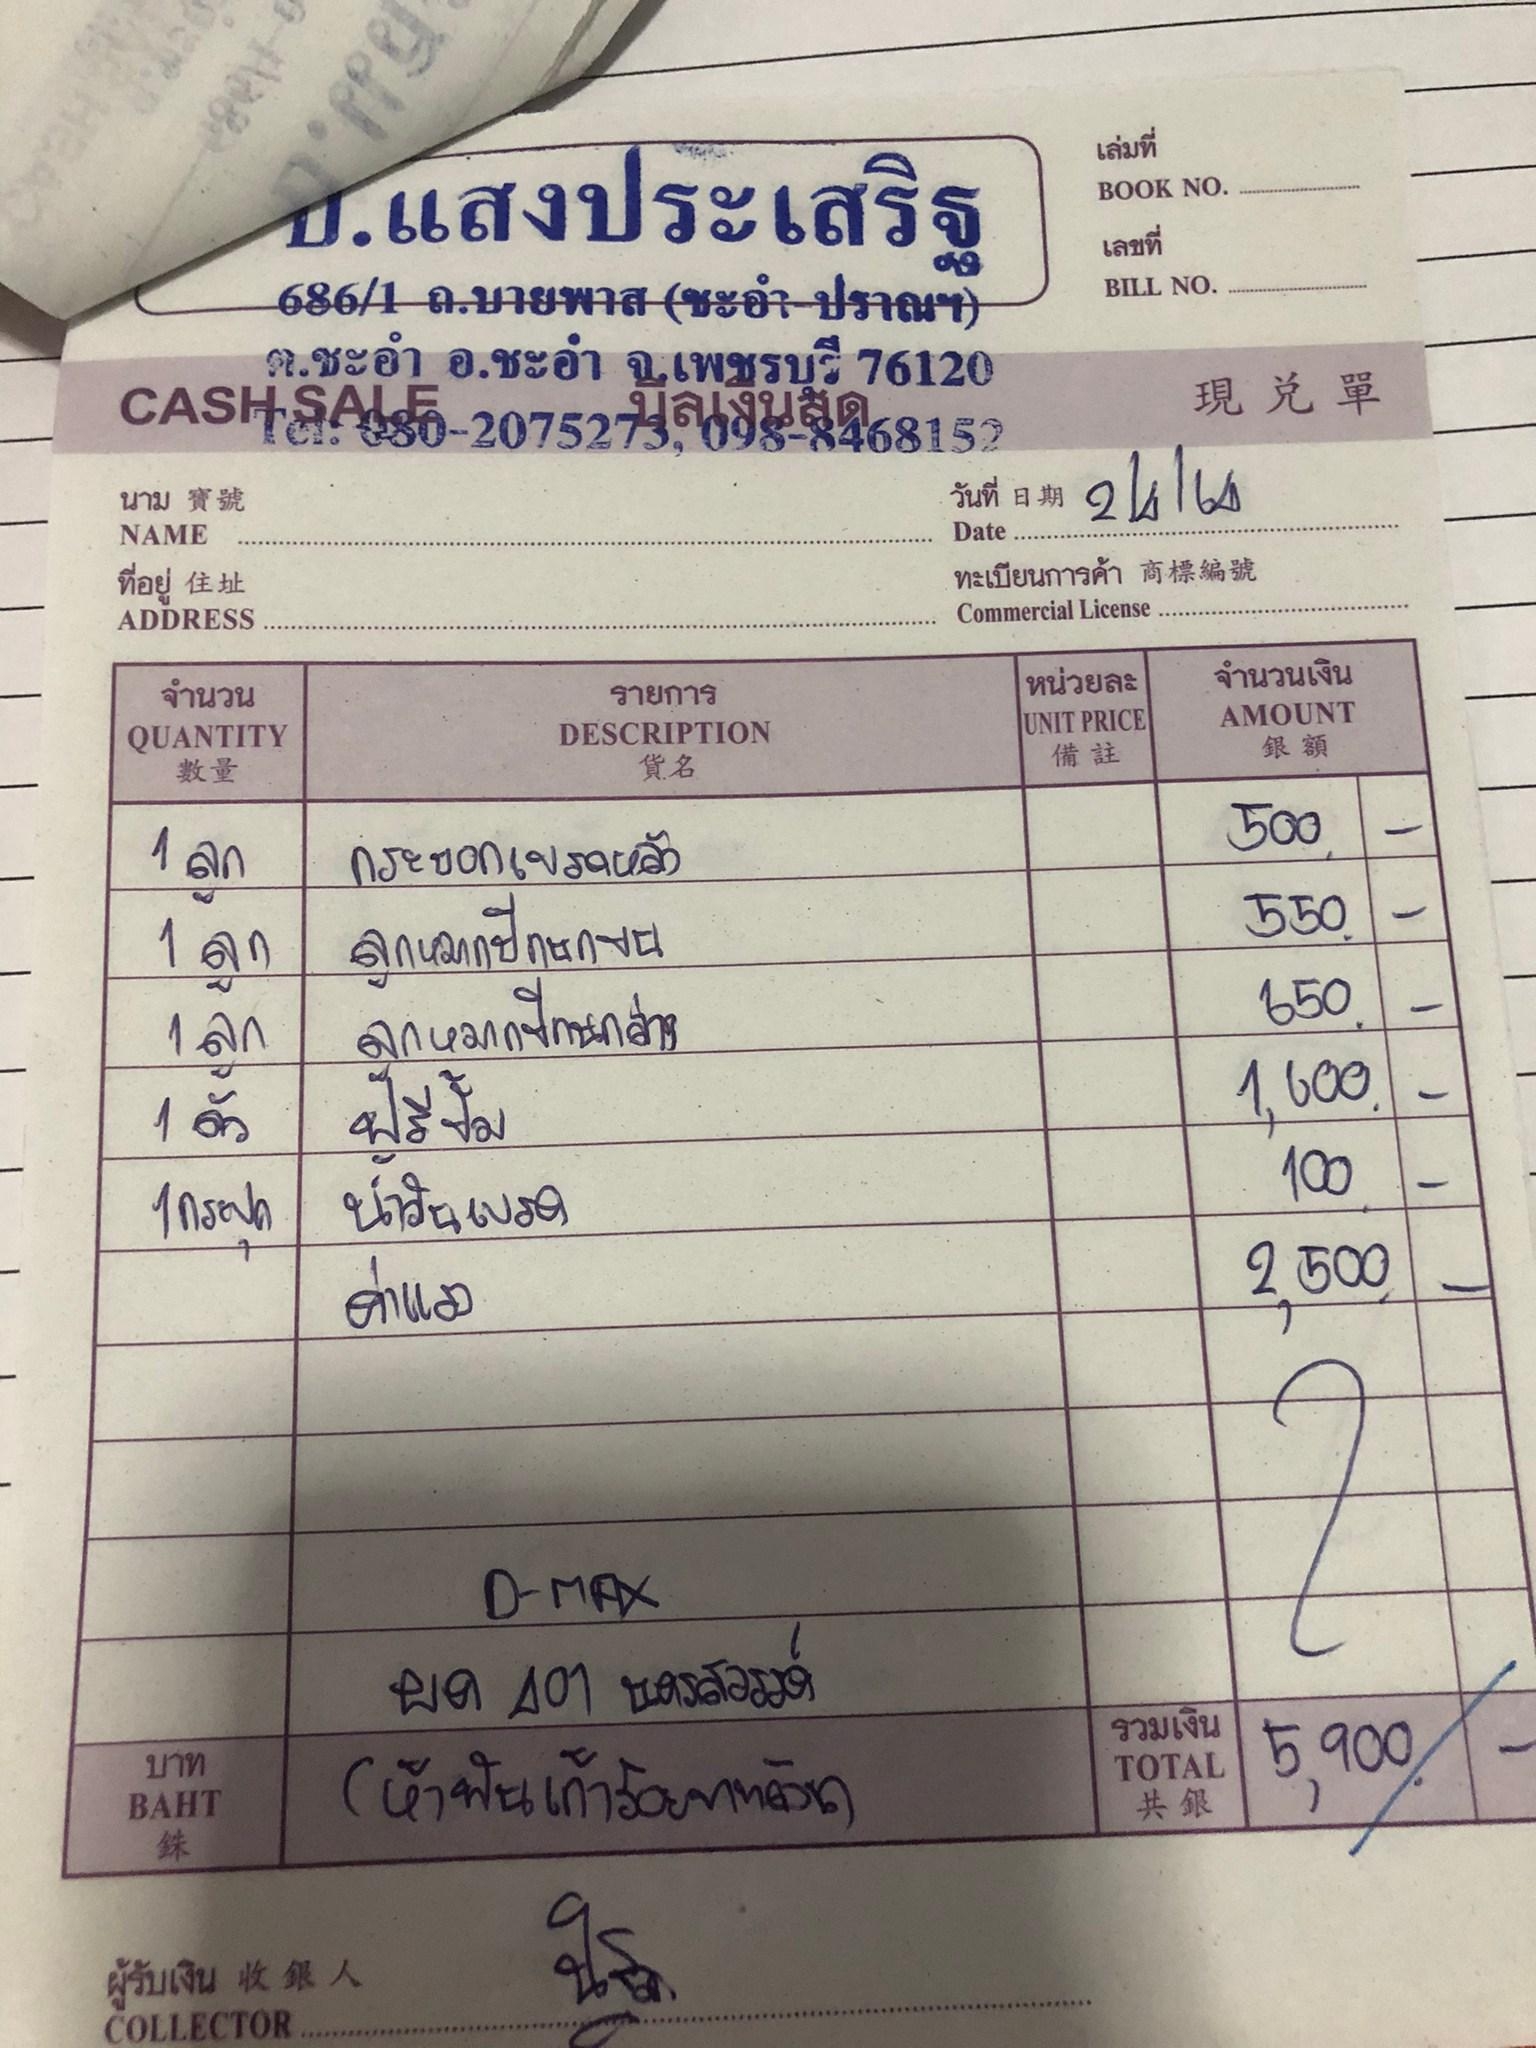 .แสงประเสริฐ
686/1 ถ.บายพาส (ชะอำ-ปราณฯ)
ต.ชะอำ อ.ชะอำ จ.เพชรบุรี 76120
Tel: 080-2075273, 098-8468152
เล่มที่
BOOK NO.
เลขที่
BILL NO.
CASH SALE บิลเงินสด 現兑單
นาม 寶號
NAME
วันที่ 日期
Date
ที่อยู่ 住址
ADDRESS
ทะเบียนการค้า 商標編號
Commercial License
จำนวน รายการ หน่วยละ จำนวนเงิน
QUANTITY DESCRIPTION UNIT PRICE AMOUNT
數量 貨名 備註 銀額
1 ลูก กระบอกเบรคหลัง 500 -
1 ลูก ลูกหมากปีกนกบน 550 -
1 ลูก ลูกหมากปีกนกล่าง 650 -
1 ตัว ฟรีปั้ม 1,600 -
1 กระปุก น้ำมันเบรค 100 -
ค่าแรง 2,500 -
D-MAX
นครสวรรค์
บาท (ห้าพันเก้าร้อยบาทถ้วน) รวมเงิน 5,900 -
BAHT TOTAL
銖 共銀
ผู้รับเงิน 收銀人
COLLECTOR